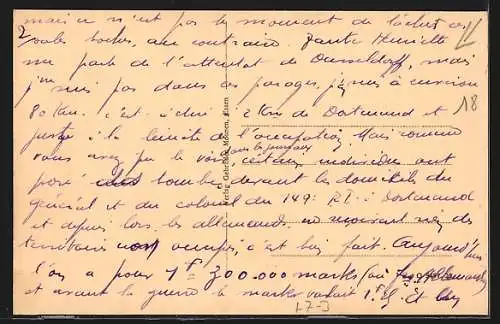 mais ce n'est pas le moment de lâcher ces
2 sales boches, au contraire. Tante Henriette
me parle de l'attentat de Dusseldorf, mais
j'ne suis pas dans ces parages, j'en suis à environ
80 Km. c'est à dire à 2 Km de Dortmund et
juste à la limite de l'occupation. Mais comme
vous avez pu le voir sur les journaux certains misérables ont
posé des bombes devant les domiciles du
général et du colonel du 149e R.I. à Dortmund
et depuis lors les allemands ne
territoire non occupé, c'est bien fait. Aujourd'hui
l'on a pour 1F = 300.000 marks
et avant la guerre le mark valait 1F,25. Et les
18
1-7-3
Verlag Gebrüder Monsen, Essen